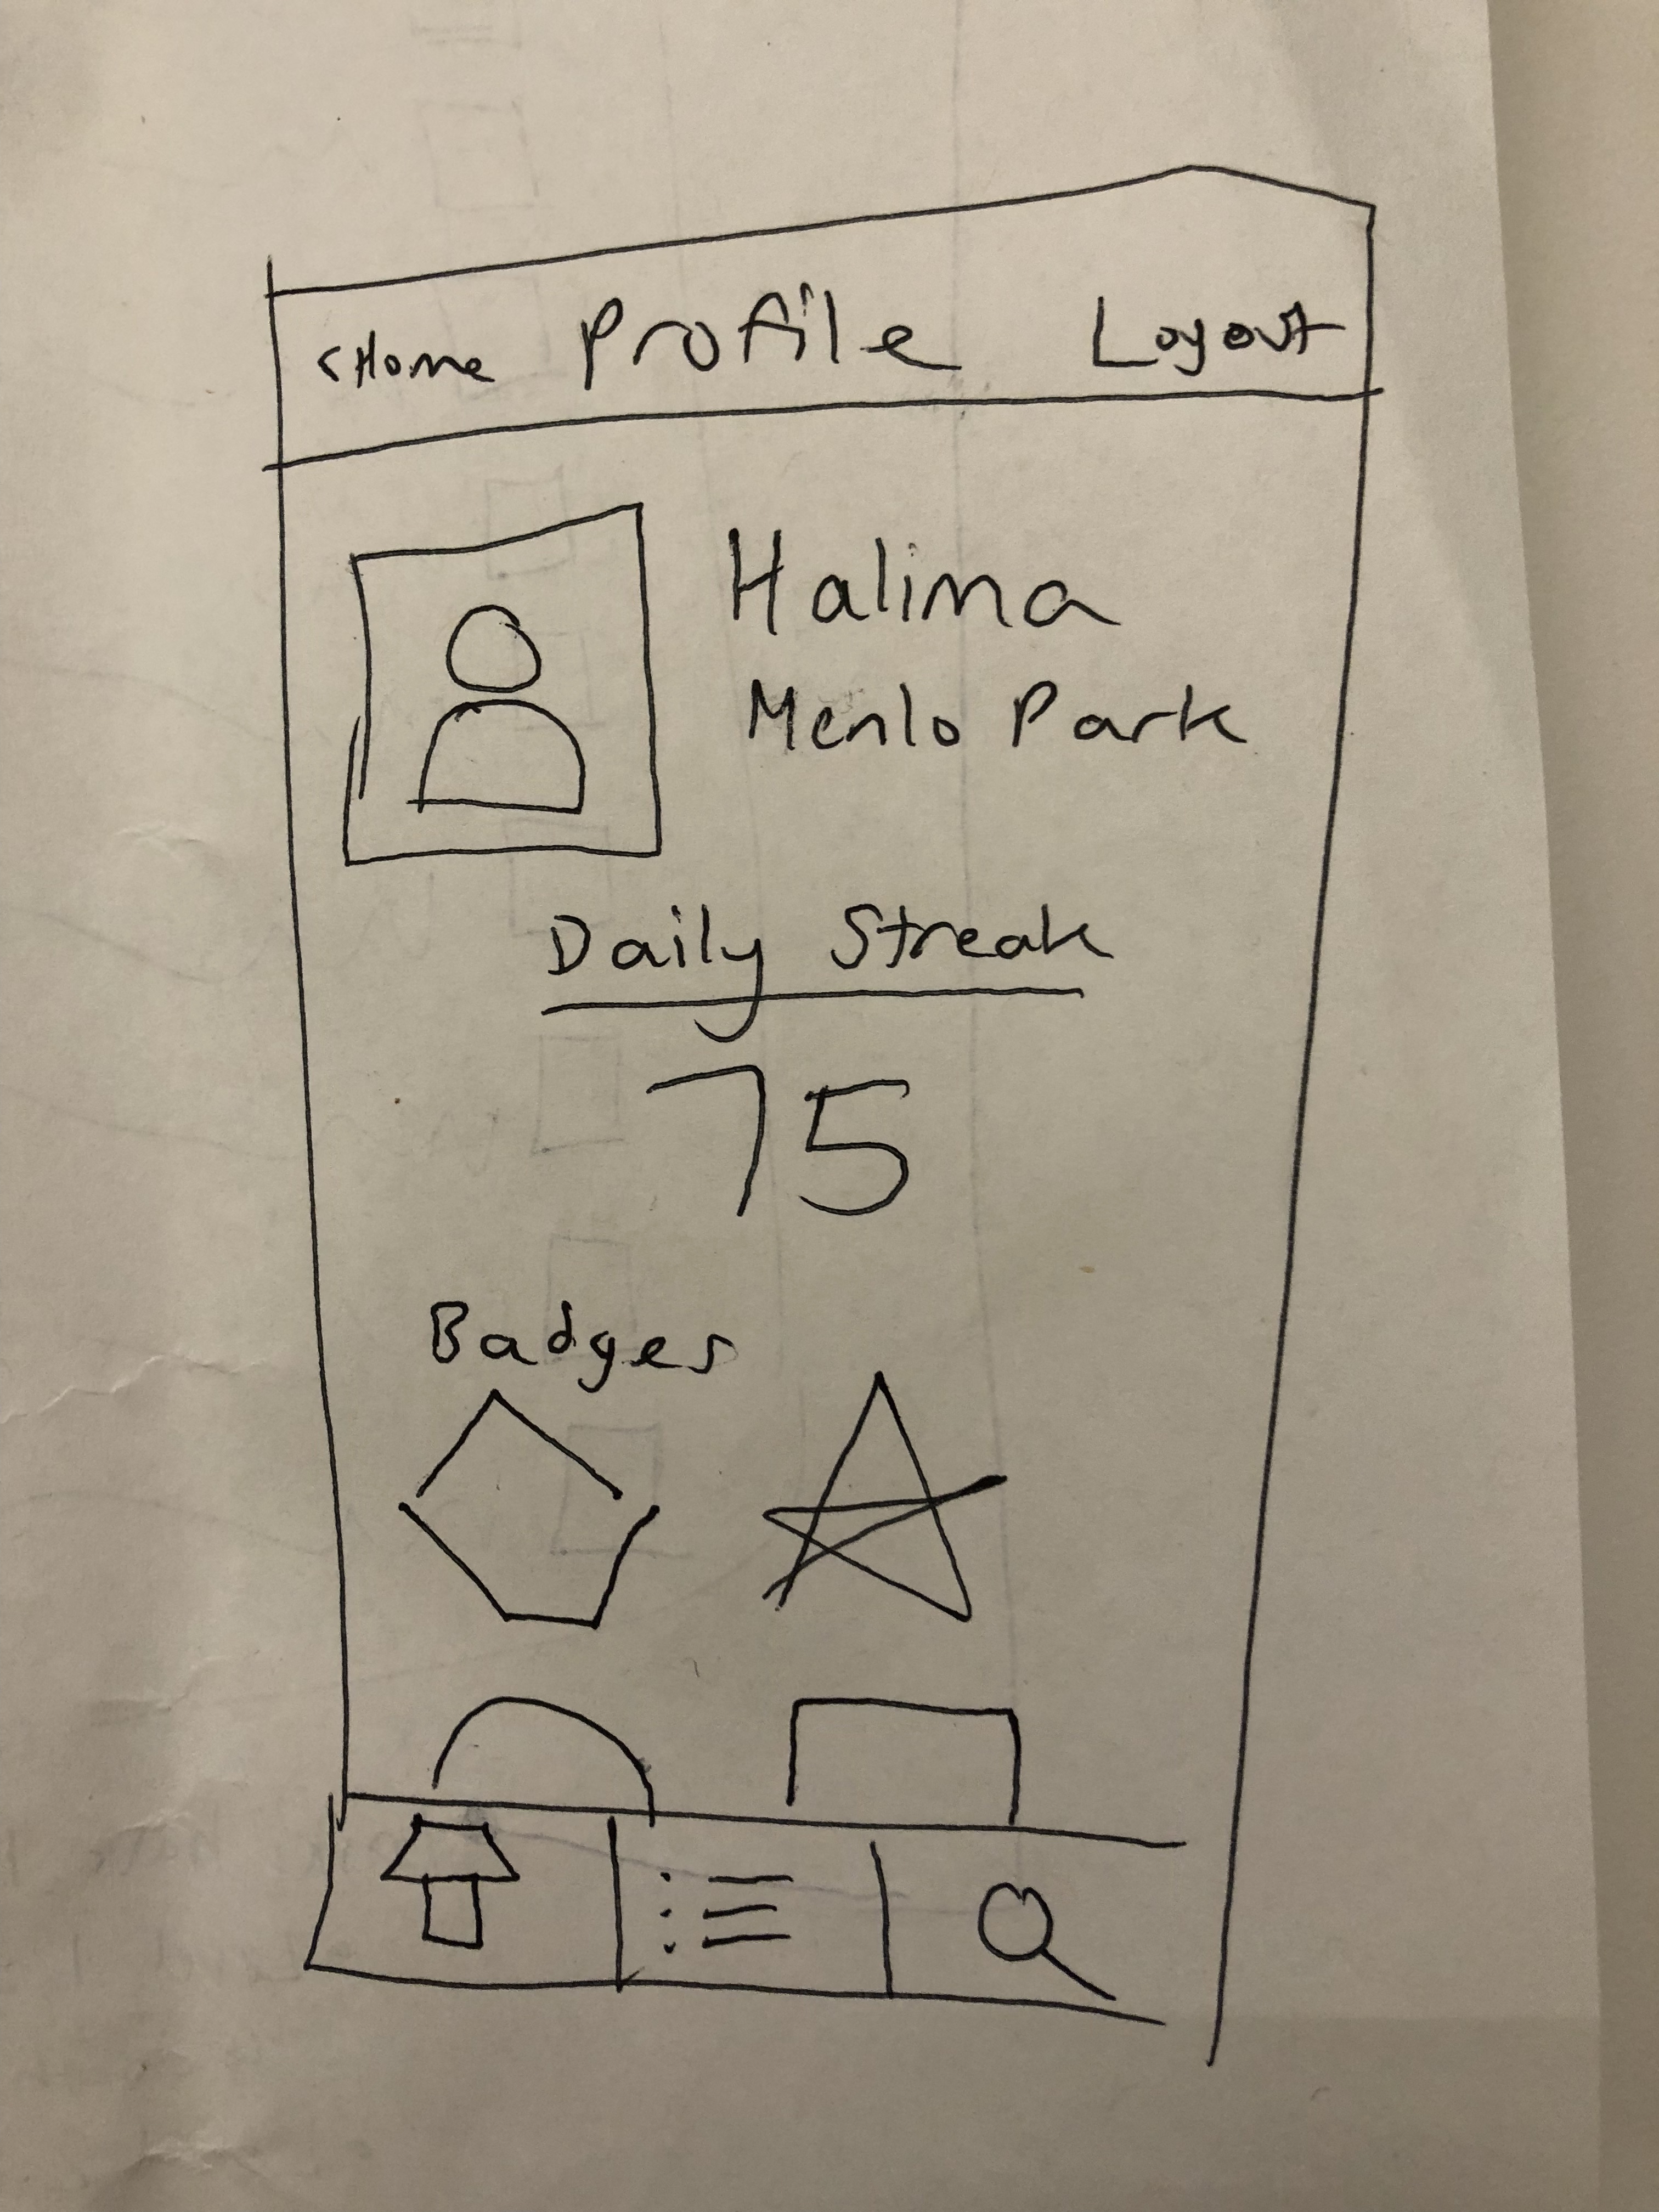 <Home Profile Logout
Halima
Menlo Park
Daily Streak
75
Badges